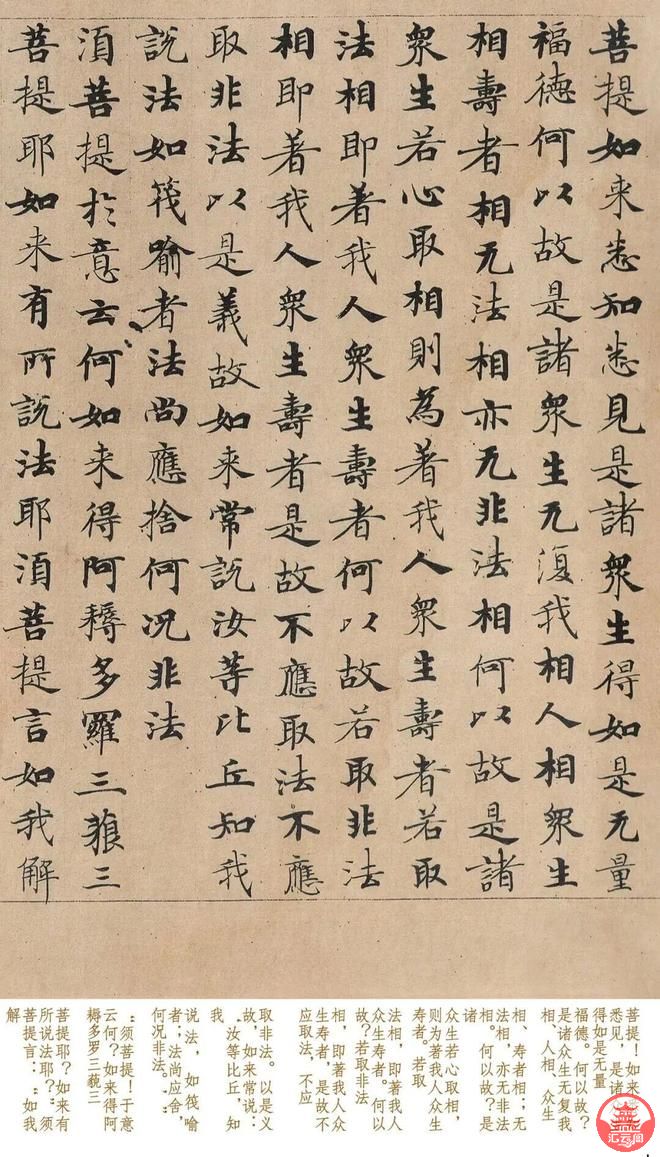 菩提如来悉知悉見是諸眾生得如是无量
福德何以故是諸眾生无復我相人相眾生
相壽者相无法相亦无非法相何以故是諸
眾生若心取相則為著我人眾生壽者若取
法相即著我人眾生壽者何以故若取非法
相即著我人眾生壽者是故不應取法不應
取非法以是義故如来常說汝等比丘知我
說法如筏喻者法尚應捨何況非法
須菩提於意云何如来得阿耨多羅三藐三
菩提耶如来有所說法耶須菩提言如我解
菩提！如来
悉见，是诸
得如是无量
福德。何以故？
是诸众生无复我
相、人相、众生
相、寿者相；无
法相，亦无非法
相。何以故？是
诸
众生若心取相，
则为著我人众生
寿者。若取
法相，即著我人
众生寿者。何以
故？若取非法
相，即著我人众
生寿者，是故不
应取法，不应
取非法。以是义
故，如来常说：
“汝等比丘，知
我
说法，如筏喻
者；法尚应舍，
何况非法。”
“须菩提！于意
云何？如来得阿
耨多罗三藐三
菩提耶？如来有
所说法耶？”须
菩提言：“如我
解
汇云阁